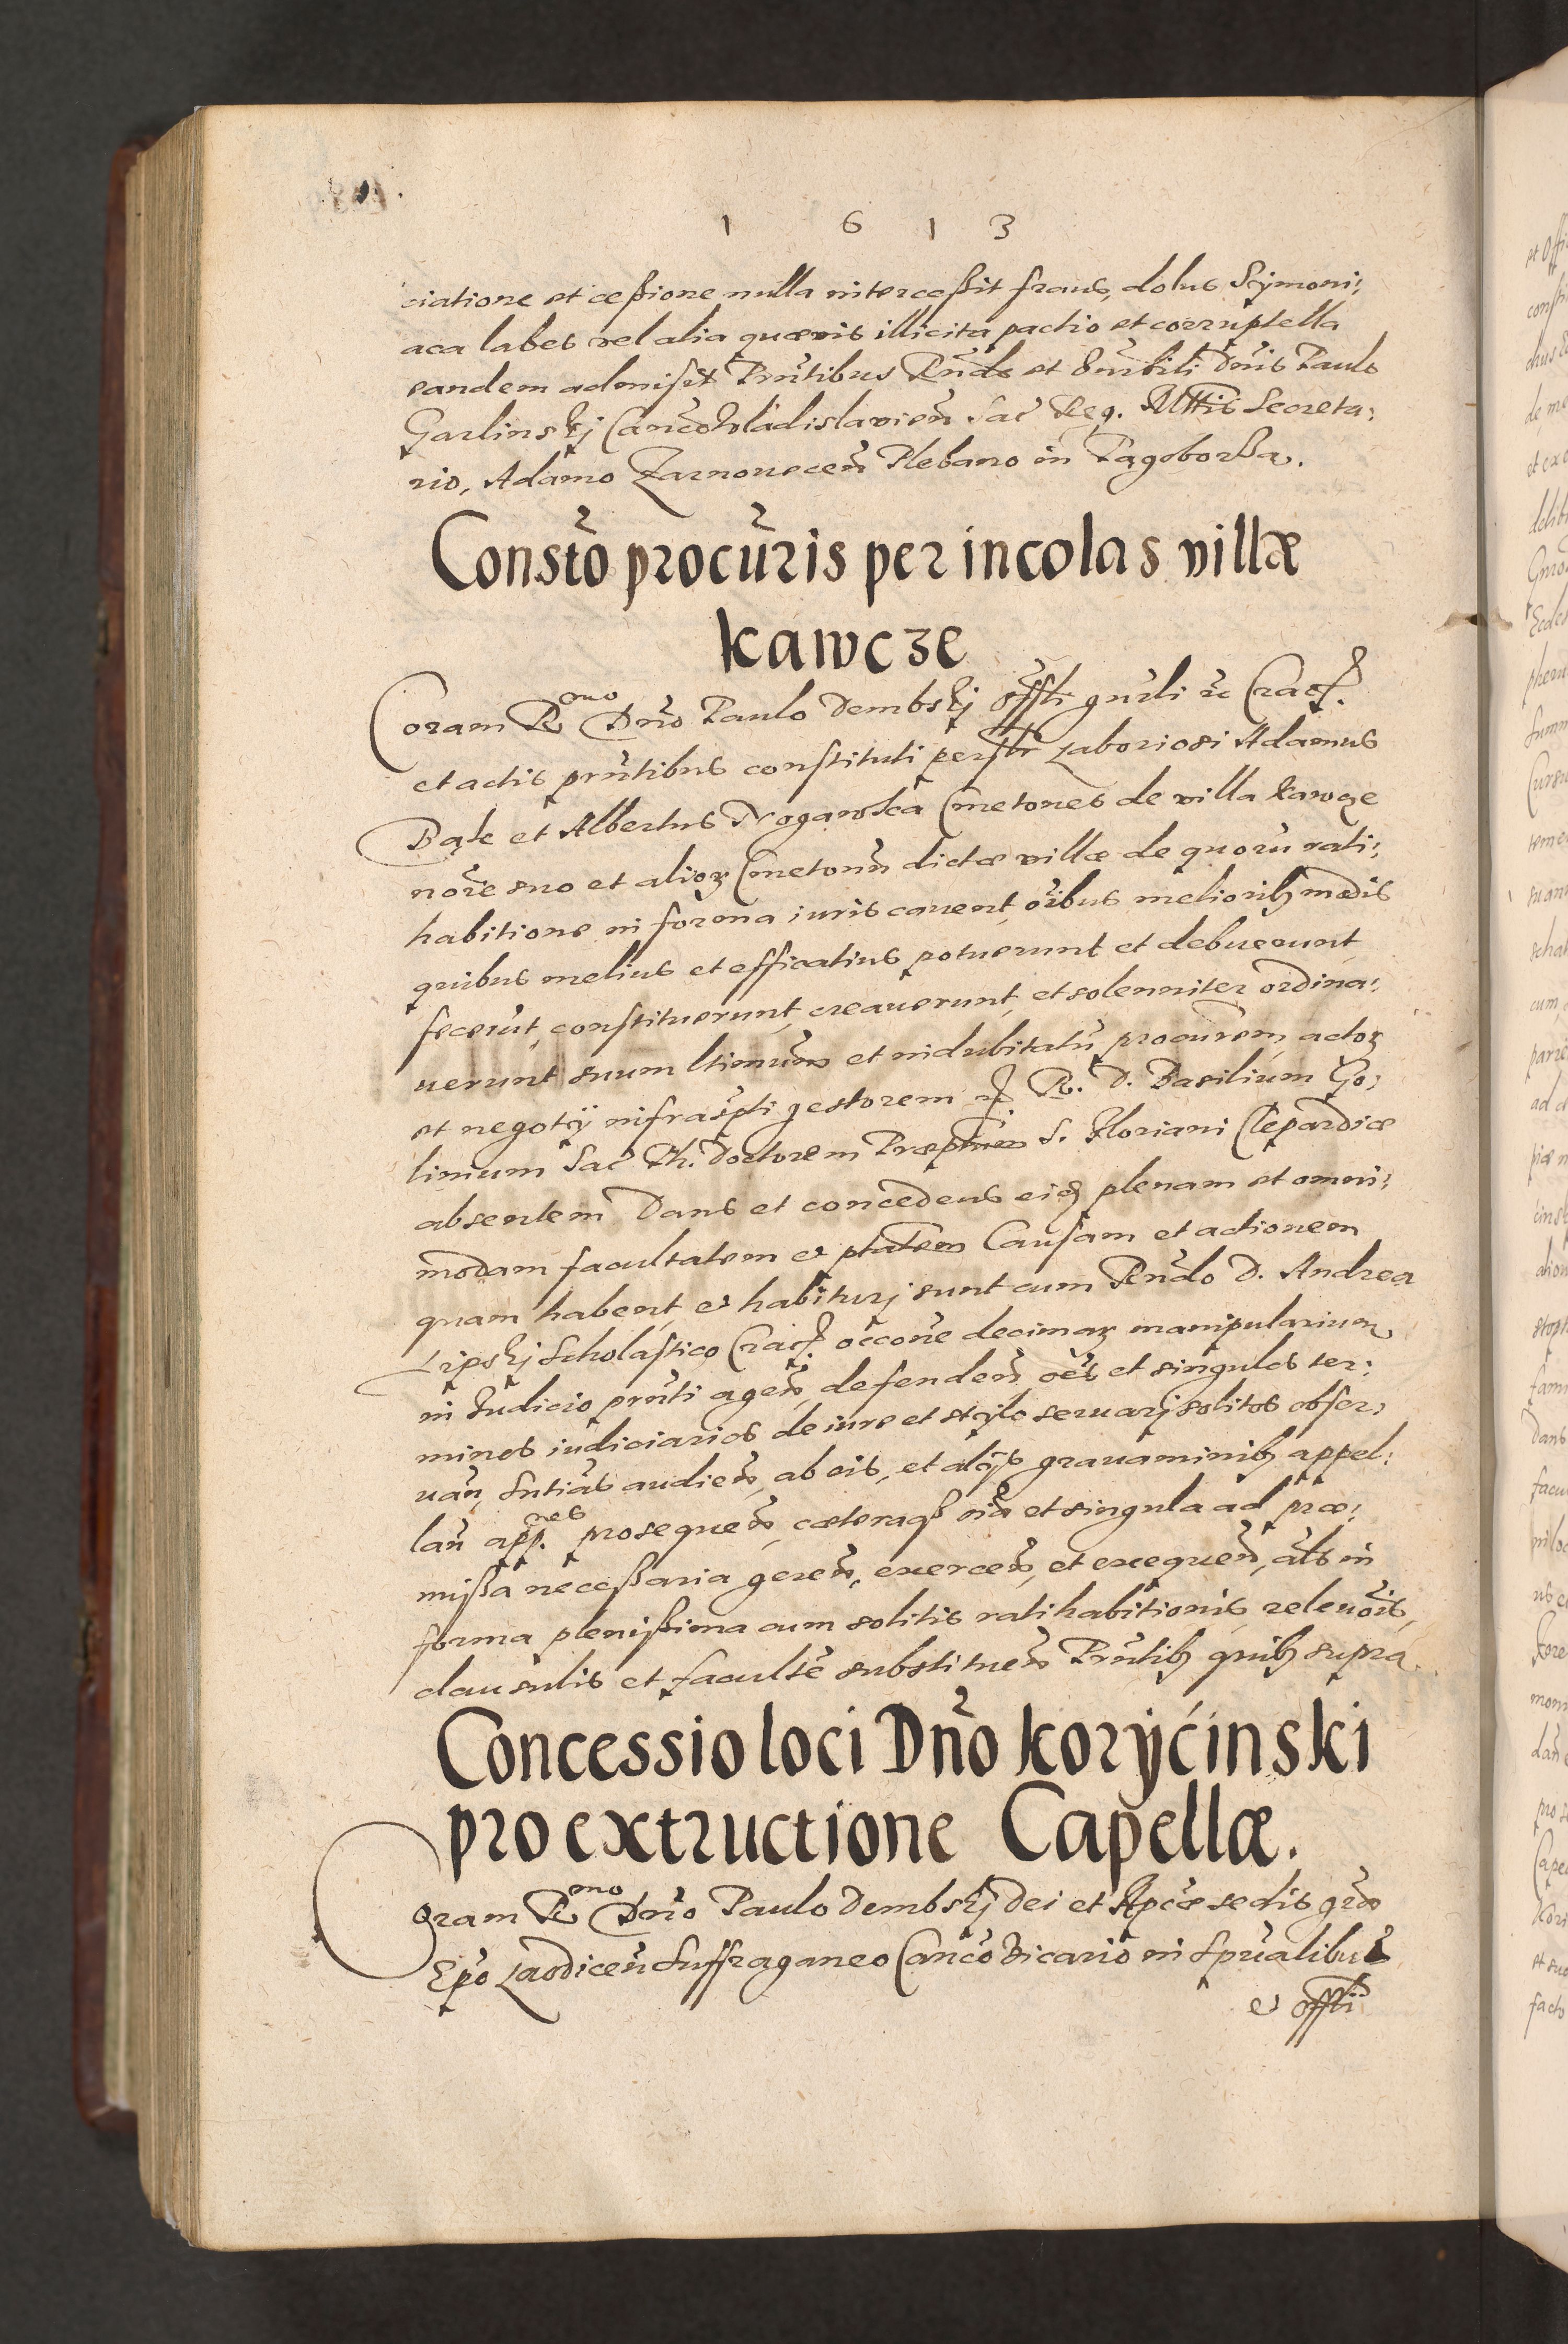 1 6 1 3
ciatione et ceßione nulla interceßit fraus, dolus Szymoni:
aca labes vel alia quævis illicita pactio et corruptella
eandem admisit Prñtibus Rñdo et Vñrbili Dñis Paulo
Garlinskj Canco Wladislavień Sac Reg. Mttis Secreta:
rio, Adamo Zarnoweceñ Plebano in
Constõ procũris per incolas villæ
kawcze
Coram R^mo Dño Paulo Dembskj offli gñrli &c Crac.
et actis prñtibus constituti persltr Laboriosi Adamus
Bąk et Albertus Cmetones de villa kawcze
nõie suo et alioꝝ Cmetonũ dictæ villæ de quorũ rati:
habitione in forma iuris cavent, oĩbus melioribꝫ modis
quibus melius et efficatius potuerunt et debuerunt
fecerũt, constituerunt, creauerunt, et solenniter ordina:
uerunt suum ltimum et indubitatũ procurem, actoꝝ
et negotÿ infrascpti gestorem R. D. Basilium Go:
linium Sac Th. Doctorem S. Floriani Clepardiæ
absentem Dans et concedens eiꝫ plenam et omni:
modam facultatem et ptatem Causam et actionem
quam habent, et habiturj sunt cum Rndo D. Andrea
Lipskj Scholastico Crac. occõne decimaꝝ manipularium
in Iudicio prñti ageñ, defendeñ oẽs et singulos ter:
minos iudiciarios de iure et stylo seruarj solitos obser:
uañ, sntias audieñ, ab eis, et alÿs grauaminibꝫ appel:
lañ app.^nes prosequeñ, cæteraqꝫ oĩa et singula ad præ:
mißa neceßaria gereñ, exerceñ, et exequeñ, als in
forma plenißima cum solitis ratihabitionis, releuõis,
clausulis et facultẽ substitueñ Prñtibꝫ quibꝫ supra.
Concessio loci Dño korÿćinski
pro extructione Capellæ.
Coram R^mo Dño Paulo Dembskj Dei et Apcæ sedis grã
Epo Laodiceñ Suffraganeo Canco Vicario in Spũalibus
et offli